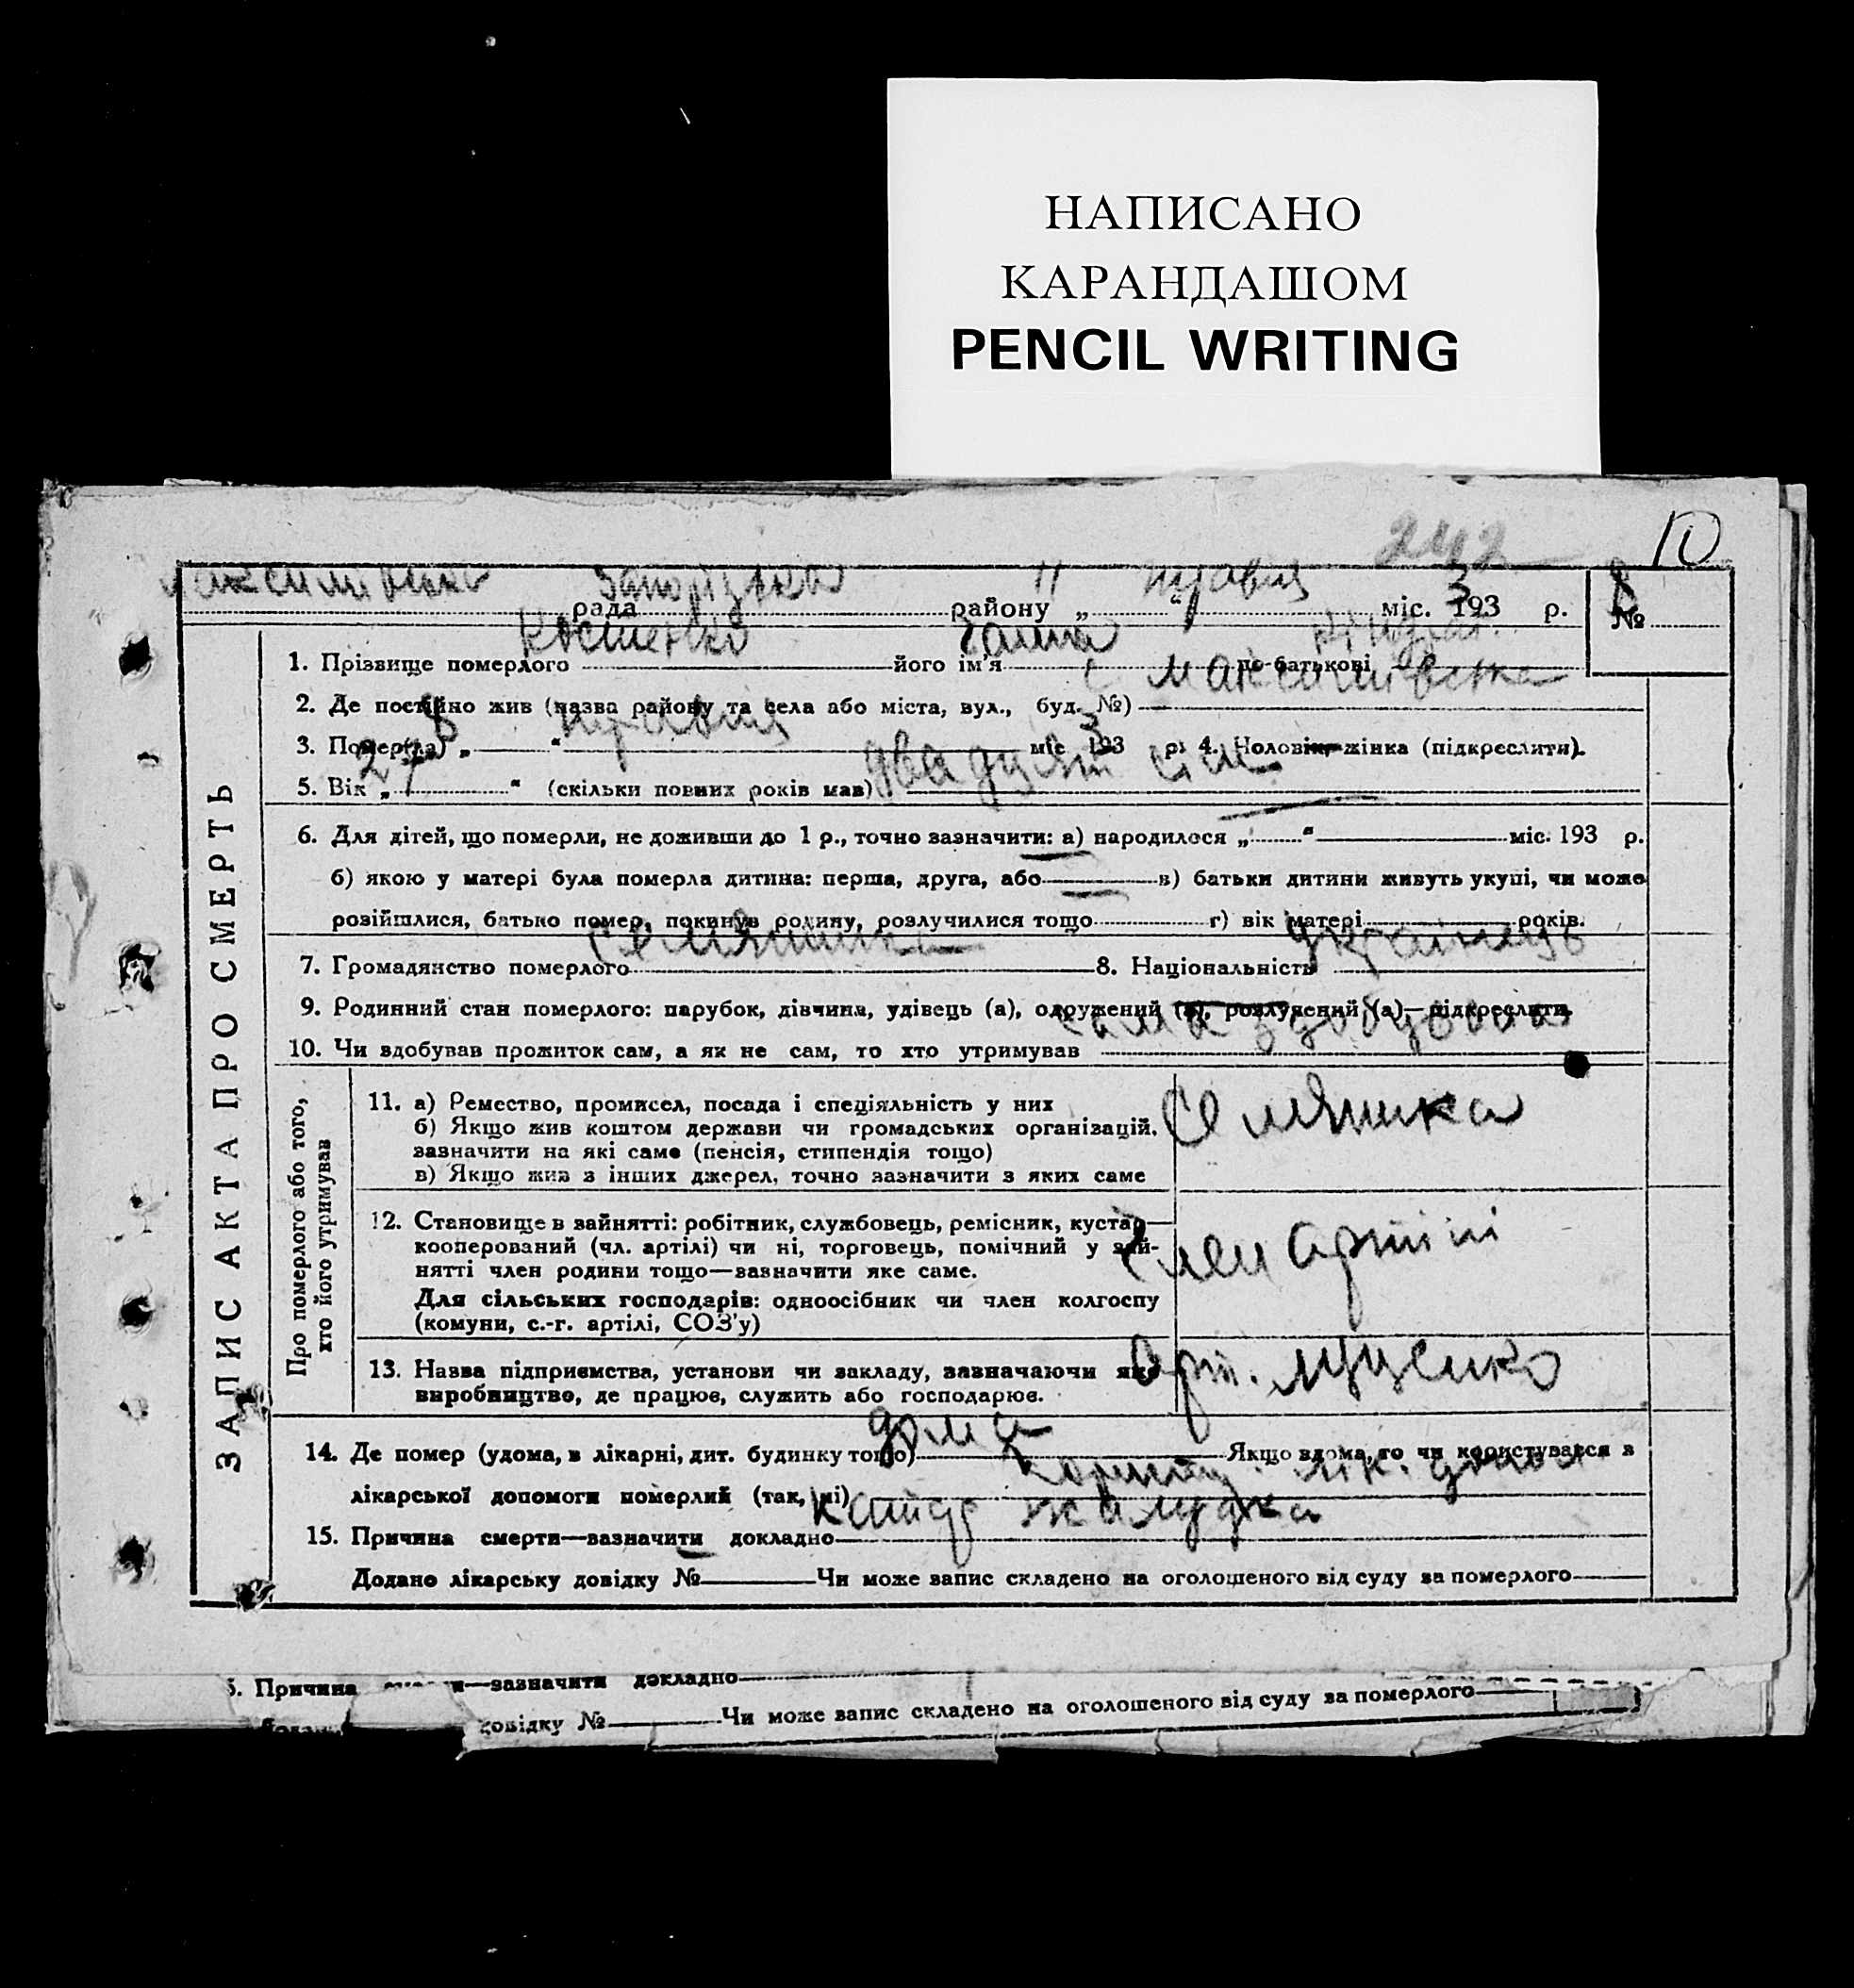 НАПИСАНО
КАРАНДАШОМ
PENCIL WRITING
10
242
Запорізька 11 травня 3 8
рада району „ “ міс. 193 р. №
Костенко Ганна
1. Прізвище померлого його ім'я по-батькові
с Максимівська
2. Де постійно жив (назва району та села або міста, вул., буд. №)
8 травня 3
3. Помер(ла) „ “ міс. 193 р. 4. Чоловік—жінка (підкреслити).
27 двадцять сім
5. Вік „ “ (скільки повних років мав)
6. Для дітей, що померли, не доживши до 1 р., точно зазначити: а) народилося „ “ міс. 193 р.
б) якою у матері була померла дитина: перша, друга, або в) батьки дитини живуть укупі, чи може
розійшлися, батько помер, покинув родину, розлучилися тощо г) вік матері років.
Селянська українець
7. Громадянство померлого 8. Національність
9. Родинний стан померлого: парубок, дівчина, удівець (а), одружений (а), розлучений (а)—підкреслити.
сама здобувала
10. Чи здобував прожиток сам, а як не сам, то хто утримував
ЗАПИС АКТА ПРО СМЕРТЬ
Про померлого або того,
хто його утримував
11. а) Ремество, промисел, посада і спеціяльність у них
б) Якщо жив коштом держави чи громадських організацій,
зазначити на які саме (пенсія, стипендія тощо)
в) Якщо жив з інших джерел, точно зазначити з яких саме
Селянська
12. Становище в зайнятті: робітник, службовець, ремісник, кустар—
кооперований (чл. артілі) чи ні, торговець, помічний у зай-
нятті член родини тощо—зазначити яке саме.
Для сільських господарів: одноосібник чи член колгоспу
(комуни, с.-г. артілі, СОЗ'у)
Член артілі
13. Назва підприємства, установи чи закладу, зазначаючи яке
виробництво, де працює, служить або господарює.
Арт.
дома
14. Де помер (удома, в лікарні, дит. будинку тощо) Якщо вдома, то чи користувався з
лік.
лікарської допомоги померлий (так, ні)
желудка
15. Причина смерти—зазначити докладно
Додано лікарську довідку № Чи може запис складено на оголошеного від суду за померлого
5. Причина зазначити докладно
довідку № Чи може запис складено на оголошеного від суду за померлого